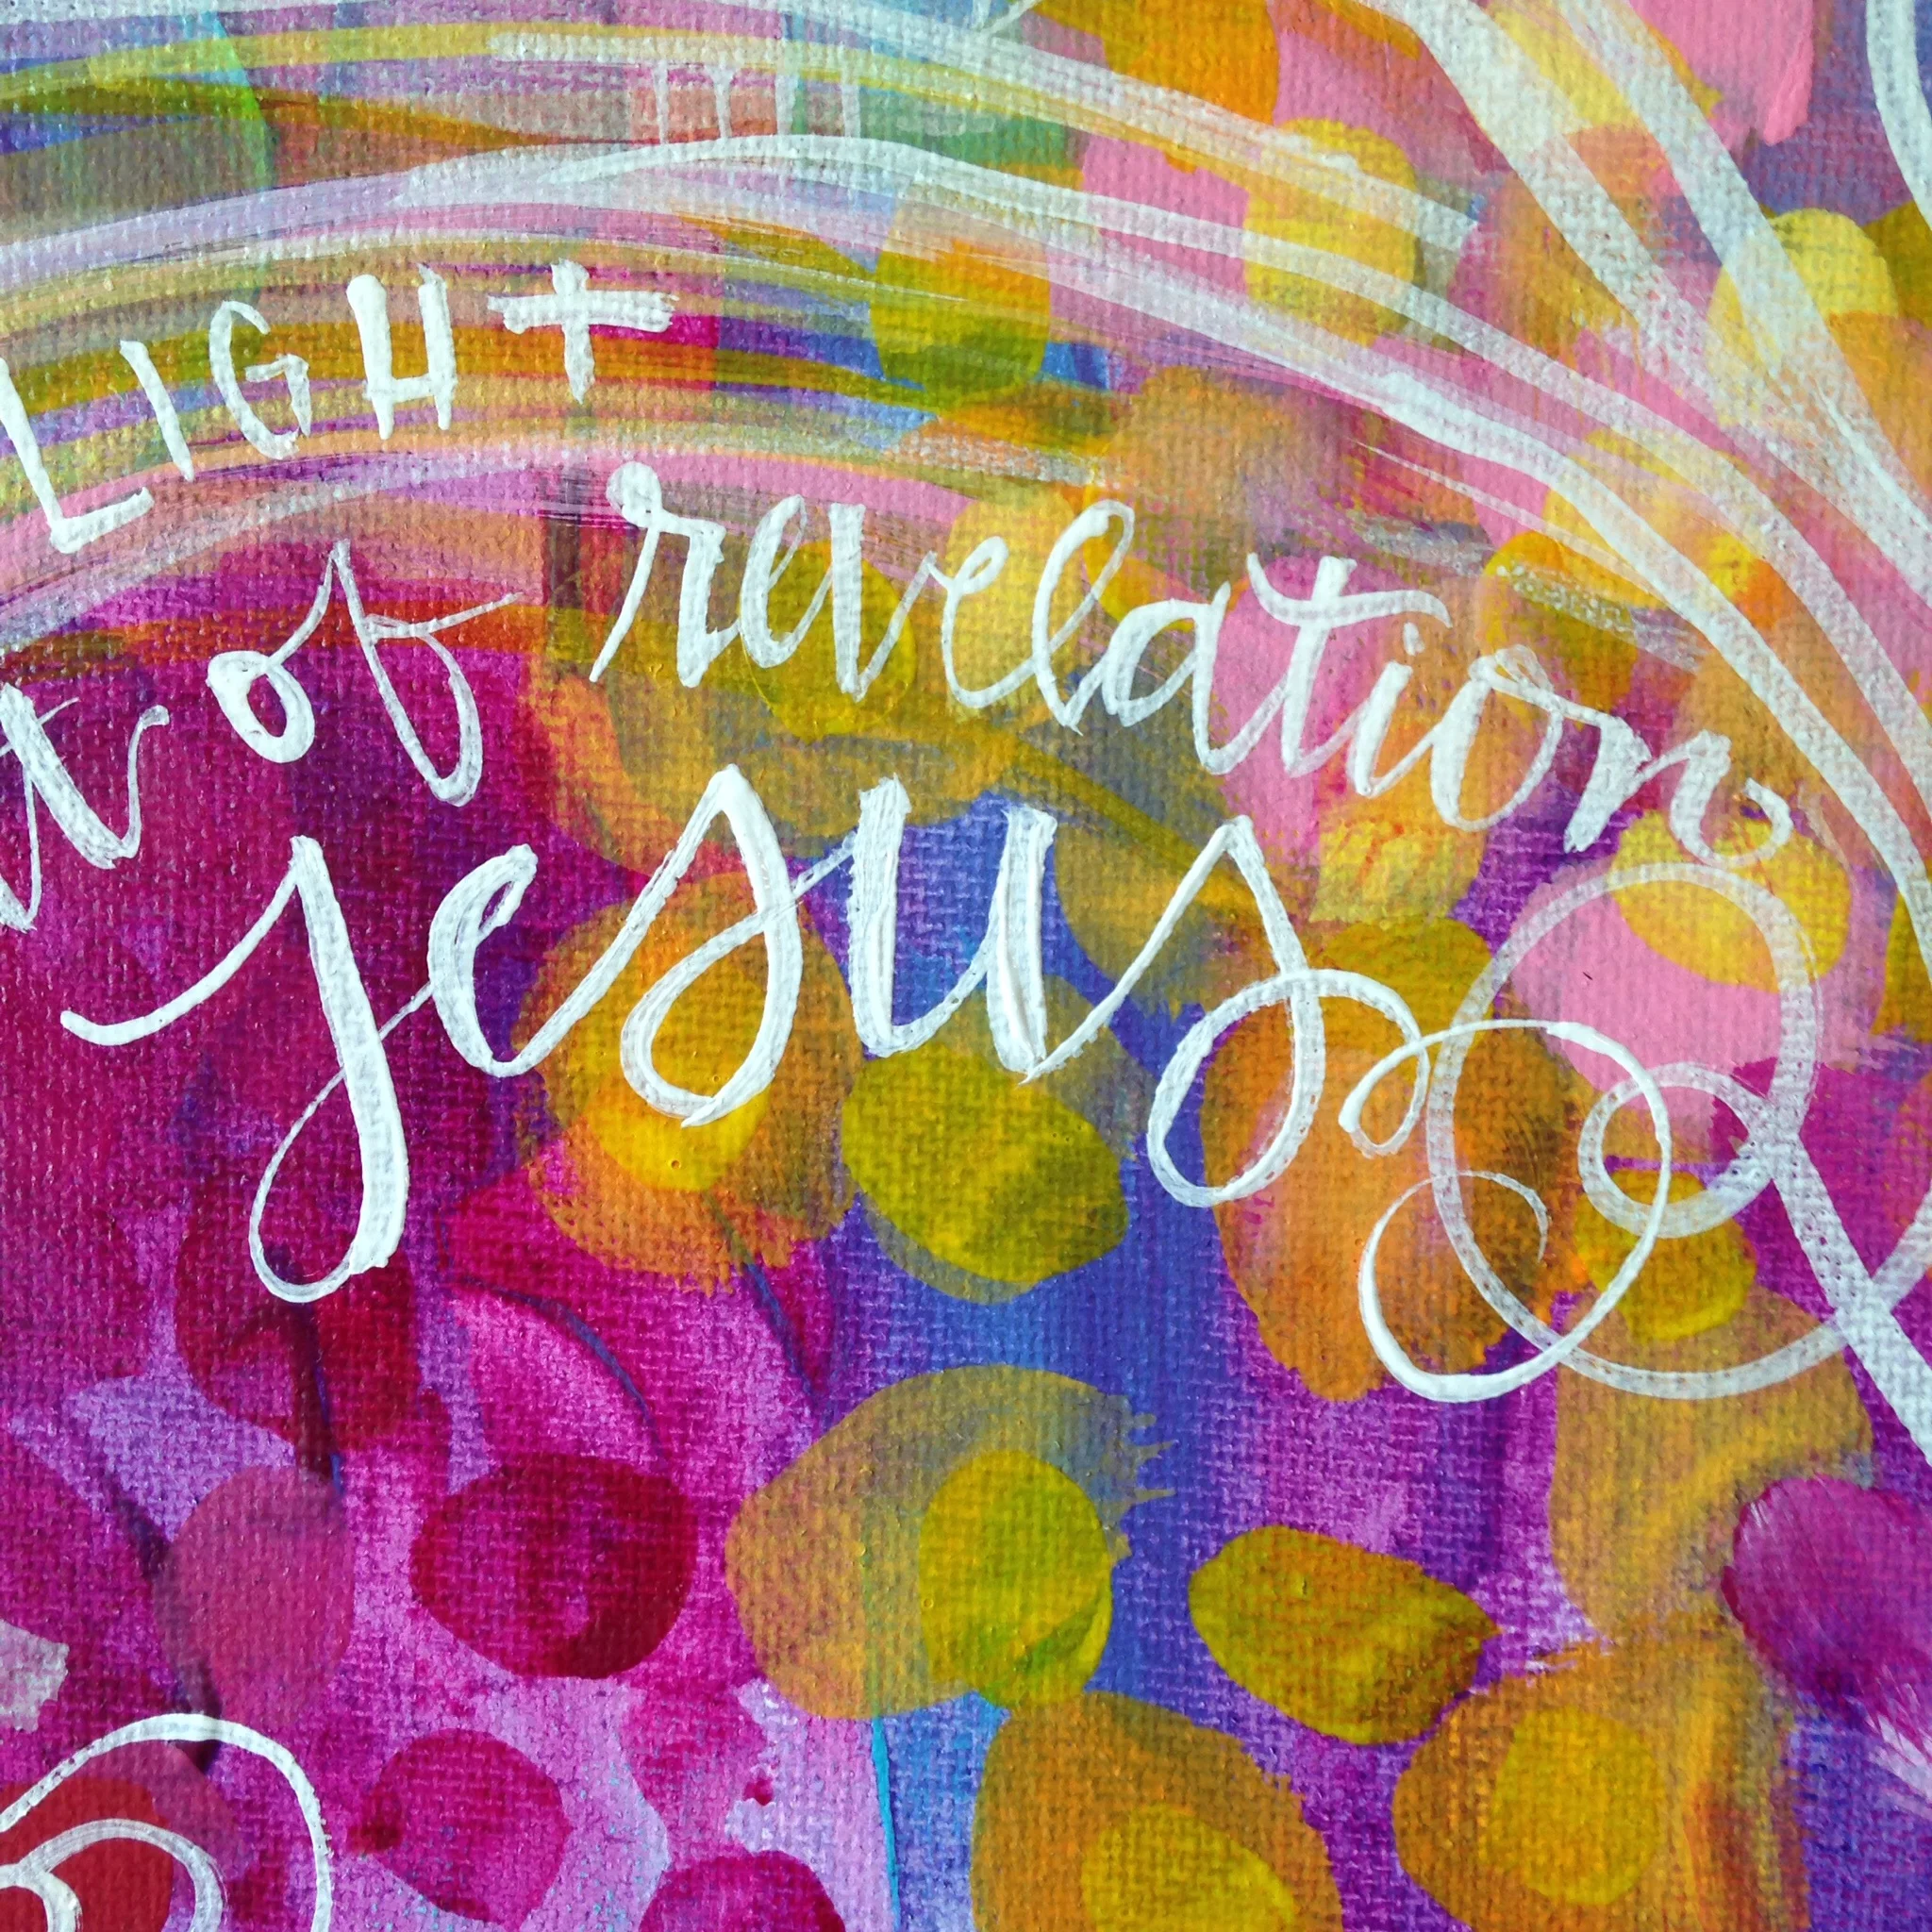 LIGHT
of revelation
Jesus